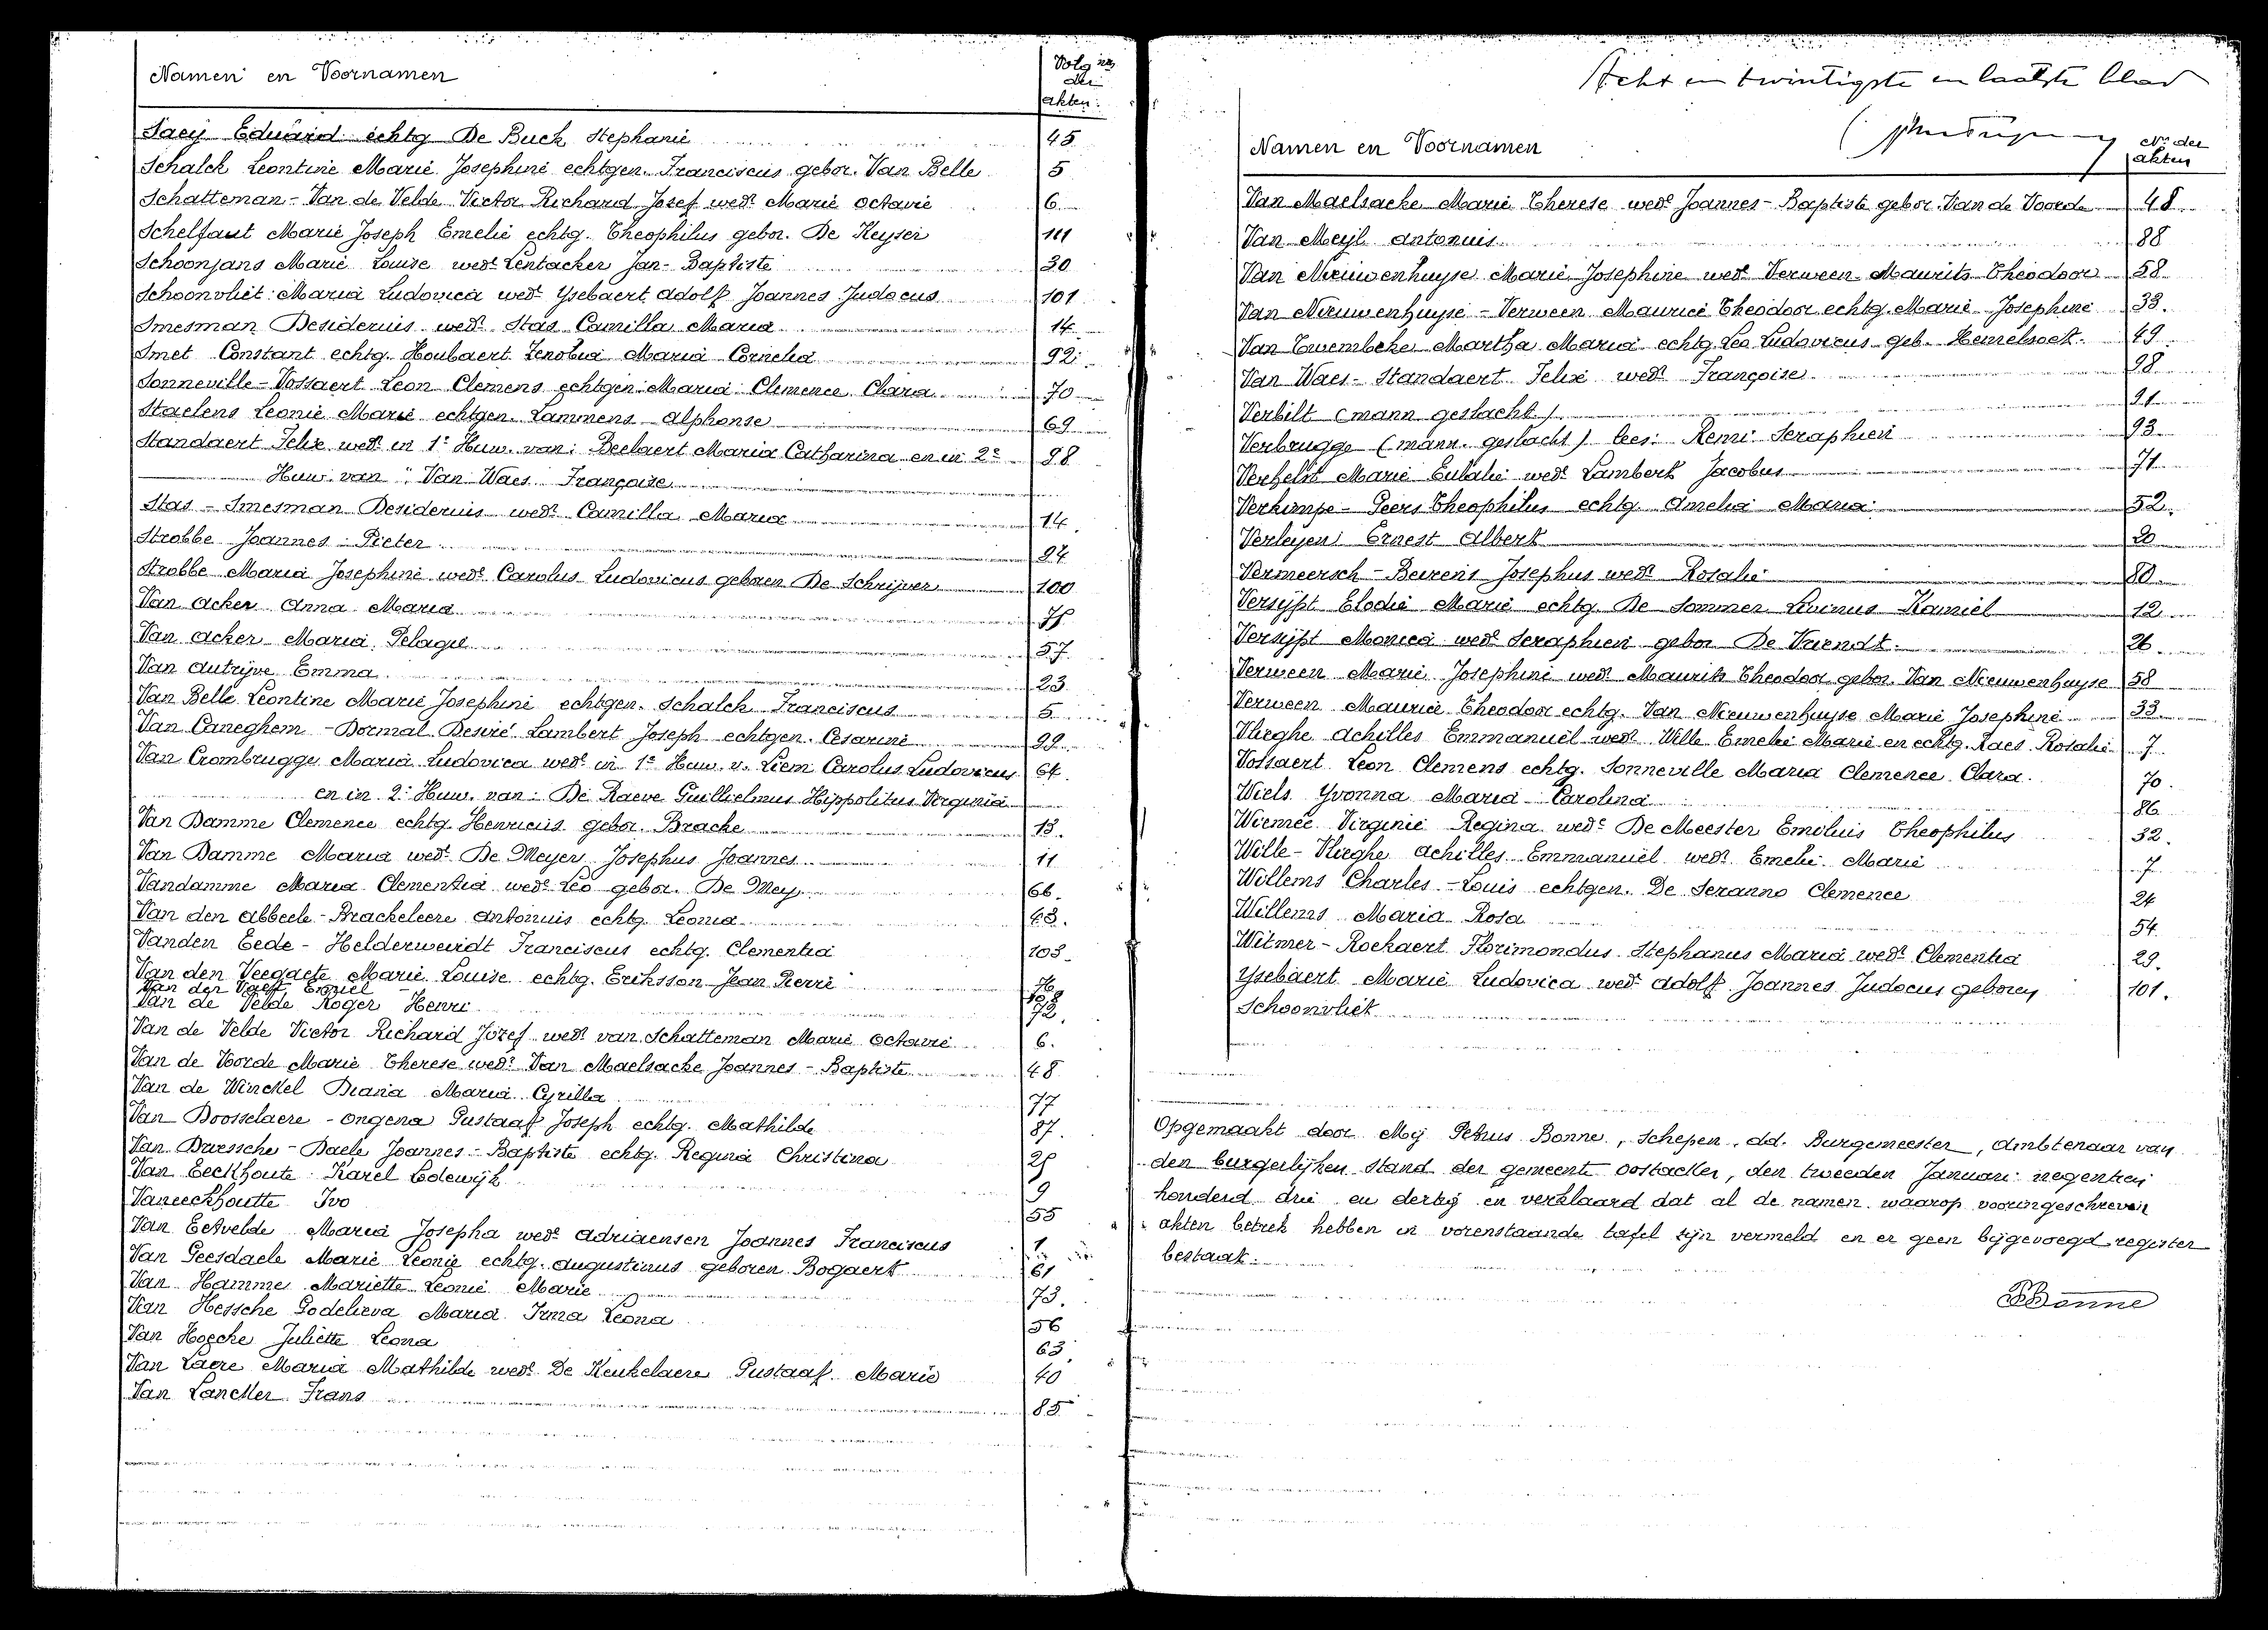 Namen en Voornamen
Volg nrs
der
akten:
Saey Eduard echtg De Buck Stephanie 45
Schalck Leontine Marie Josephine echtgen. Franciscus gebor. Van Belle 5
Schatteman - Van de Velde Victor Richard Josef wedr Marie Octavie 6
Schelfaut Marie Joseph Emelie echtg. Theophilus gebor. De Keyser 111
Schoonjans Marie Louise wede Lentacker Jan-Baptiste 30
Schoonvliet Maria Ludovica wede Ysebaert Adolf Joannes Judocus 101
Smesman Desiderius wedr Stas Camilla Maria 14
Smet Constant echtg. Houbaert Zenobia Maria Cornelia 92
Sonneville - Vossaert Leon Clemens echtgen Maria Clemence Clara 70
Staelens Leonie Marie echtgen. Lammens Alphonse 69
Standaert Felix wedr in 1e Huw. van: Beelaert Maria Catharina en in 2e 98
Huw. van: Van Waes Françoise
Stas - Smesman Desiderius wedr Camilla Maria 14.
Strobbe Joannes Pieter 94
Strobbe Maria Josephine wede Carolus Ludovicus geboren De Schrijver 100
Van Acker Anna Maria
Van Acker Maria Pelagie 57
Van Autrijve Emma 23
Van Belle Leontine Marie Josephine echtgen. Schalck Franciscus 5
Van Caneghem - Dormal Desiré Lambert Joseph echtgen. Cesarine 99
Van Crombrugge Maria Ludovica wede in 1e Huw. v. Liem Carolus Ludovicus 64.
en in 2e Huw. van: De Raeve Guillielmus Hippolitus Virginia
Van Damme Clemence echtg. Henricus gebor. Bracke 13.
Van Damme Maria wede De Meyer Josephus Joannes 11
Vandamme Maria Clementia wede Leo gebor. De Mey 66.
Van den Abbeele - Brackeleere Antonius echtg Leonia 43.
Vanden Eede - Helderweirdt Franciscus echtg. Clementia 103
Van den Veegaete Marie Louise echtg. Eriksson Jean Pierre 76
Van der Vaeft Emiel 108
Van de Velde Roger Henri 72.
Van de Velde Victor Richard Jozef wedr van Schatteman Marie Octavie 6.
Van de Voorde Marie Therese wede Van Maelsacke Joannes - Baptiste 48
Van de Winckel Diana Maria Cyrilla 77
Van Doosselaere - Ongena Gustaaf Joseph echtg. Mathilde 87.
Van Driessche - Daele Joannes - Baptiste echtg. Regina Christina 25
Van Eeckhoute Karel Lodewijk 9
Vaneeckhoutte Ivo 55
Van Eetvelde Maria Josepha wede Adriaensen Joannes Franciscus 1
Van Geesdaele Marie Leonie echtg. Augustinus geboren Bogaert 61
Van Hamme Mariette Leonie Marie 73.
Van Hessche Godelieva Maria Irma Leona 56
Van Hoecke Juliette Leona 63.
Van Laere Maria Mathilde wede De Keukelaere Gustaaf Marie 40
Van Lancker Frans 85
Acht en twintigste en laatste blad
Namen en Voornamen
Nrs der
akten
Van Maelsacke Marie Therese wede Joannes - Baptiste gebor. Van de Voorde 48
Van Meyl Antonius 88
Van Nieuwenhuyse Marie Josephine wede Verween Maurits Theodoor 58
Van Nieuwenhuyse - Verween Maurice Theodoor echtg. Marie Josephine 33.
Van Twembeke Martha Maria echtg. Leo Ludovicus geb. Hemelsoet 49
Van Waes - Standaert Felix wedr Françoise 98
Verbilt (mann geslacht) 91
Verbrugge (mann. geslacht) lees: Remi Seraphien 93
Verhelst Marie Eulalie wede Lambert Jacobus 71
Verkimpe - Geers Theophilus echtg. Amelia Maria 52.
Verleyen Ernest Albert 20
Vermeersch - Beirens Josephus wedr Rosalie 80
Versijpt Elodie Marie echtg De Sommer Livinus Kamiel 12
Versijpt Monica wede Seraphien gebor De Vriendt 26.
Verween Marie Josephine wede Maurits Theodoor gebor. Van Nieuwenhuyse 58
Verween Maurice Theodoor echtg. Van Nieuwenhuyse Marie Josephine 33
Vlieghe Achilles Emmanuel wedr Wille Emelie Marie en echtg. Raes Rosalie 7
Vossaert Leon Clemens echtg. Sonneville Maria Clemence Clara 70.
Wiels Yvonna Maria Carolina 86
Wiemée Virginie Regina wede De Meester Emilius Theophilus 32.
Wille - Vlieghe Achilles Emmanuel wedr Emelie Marie 7
Willems Charles - Louis echtgen. De Seranno Clemence 24
Willems Maria Rosa 54
Witmer - Rockaert Florimondus Stephanus Maria wedr Clementia 29.
Ysebaert Marie Ludovica wede Adolf Joannes Judocus geboren 101.
Schoonvliet
Opgemaakt door Mij Petrus Bonne, Schepen, dd. Burgemeester, Ambtenaar van
den burgerlijken Stand der gemeente Oostacker, den tweeden Januari negentien
honderd drie en dertig en verklaard dat al de namen waarop vooringeschreven
akten betrek hebben in vorenstaande tafel zijn vermeld en er geen bijgevoegd register
bestaat.
PBonne